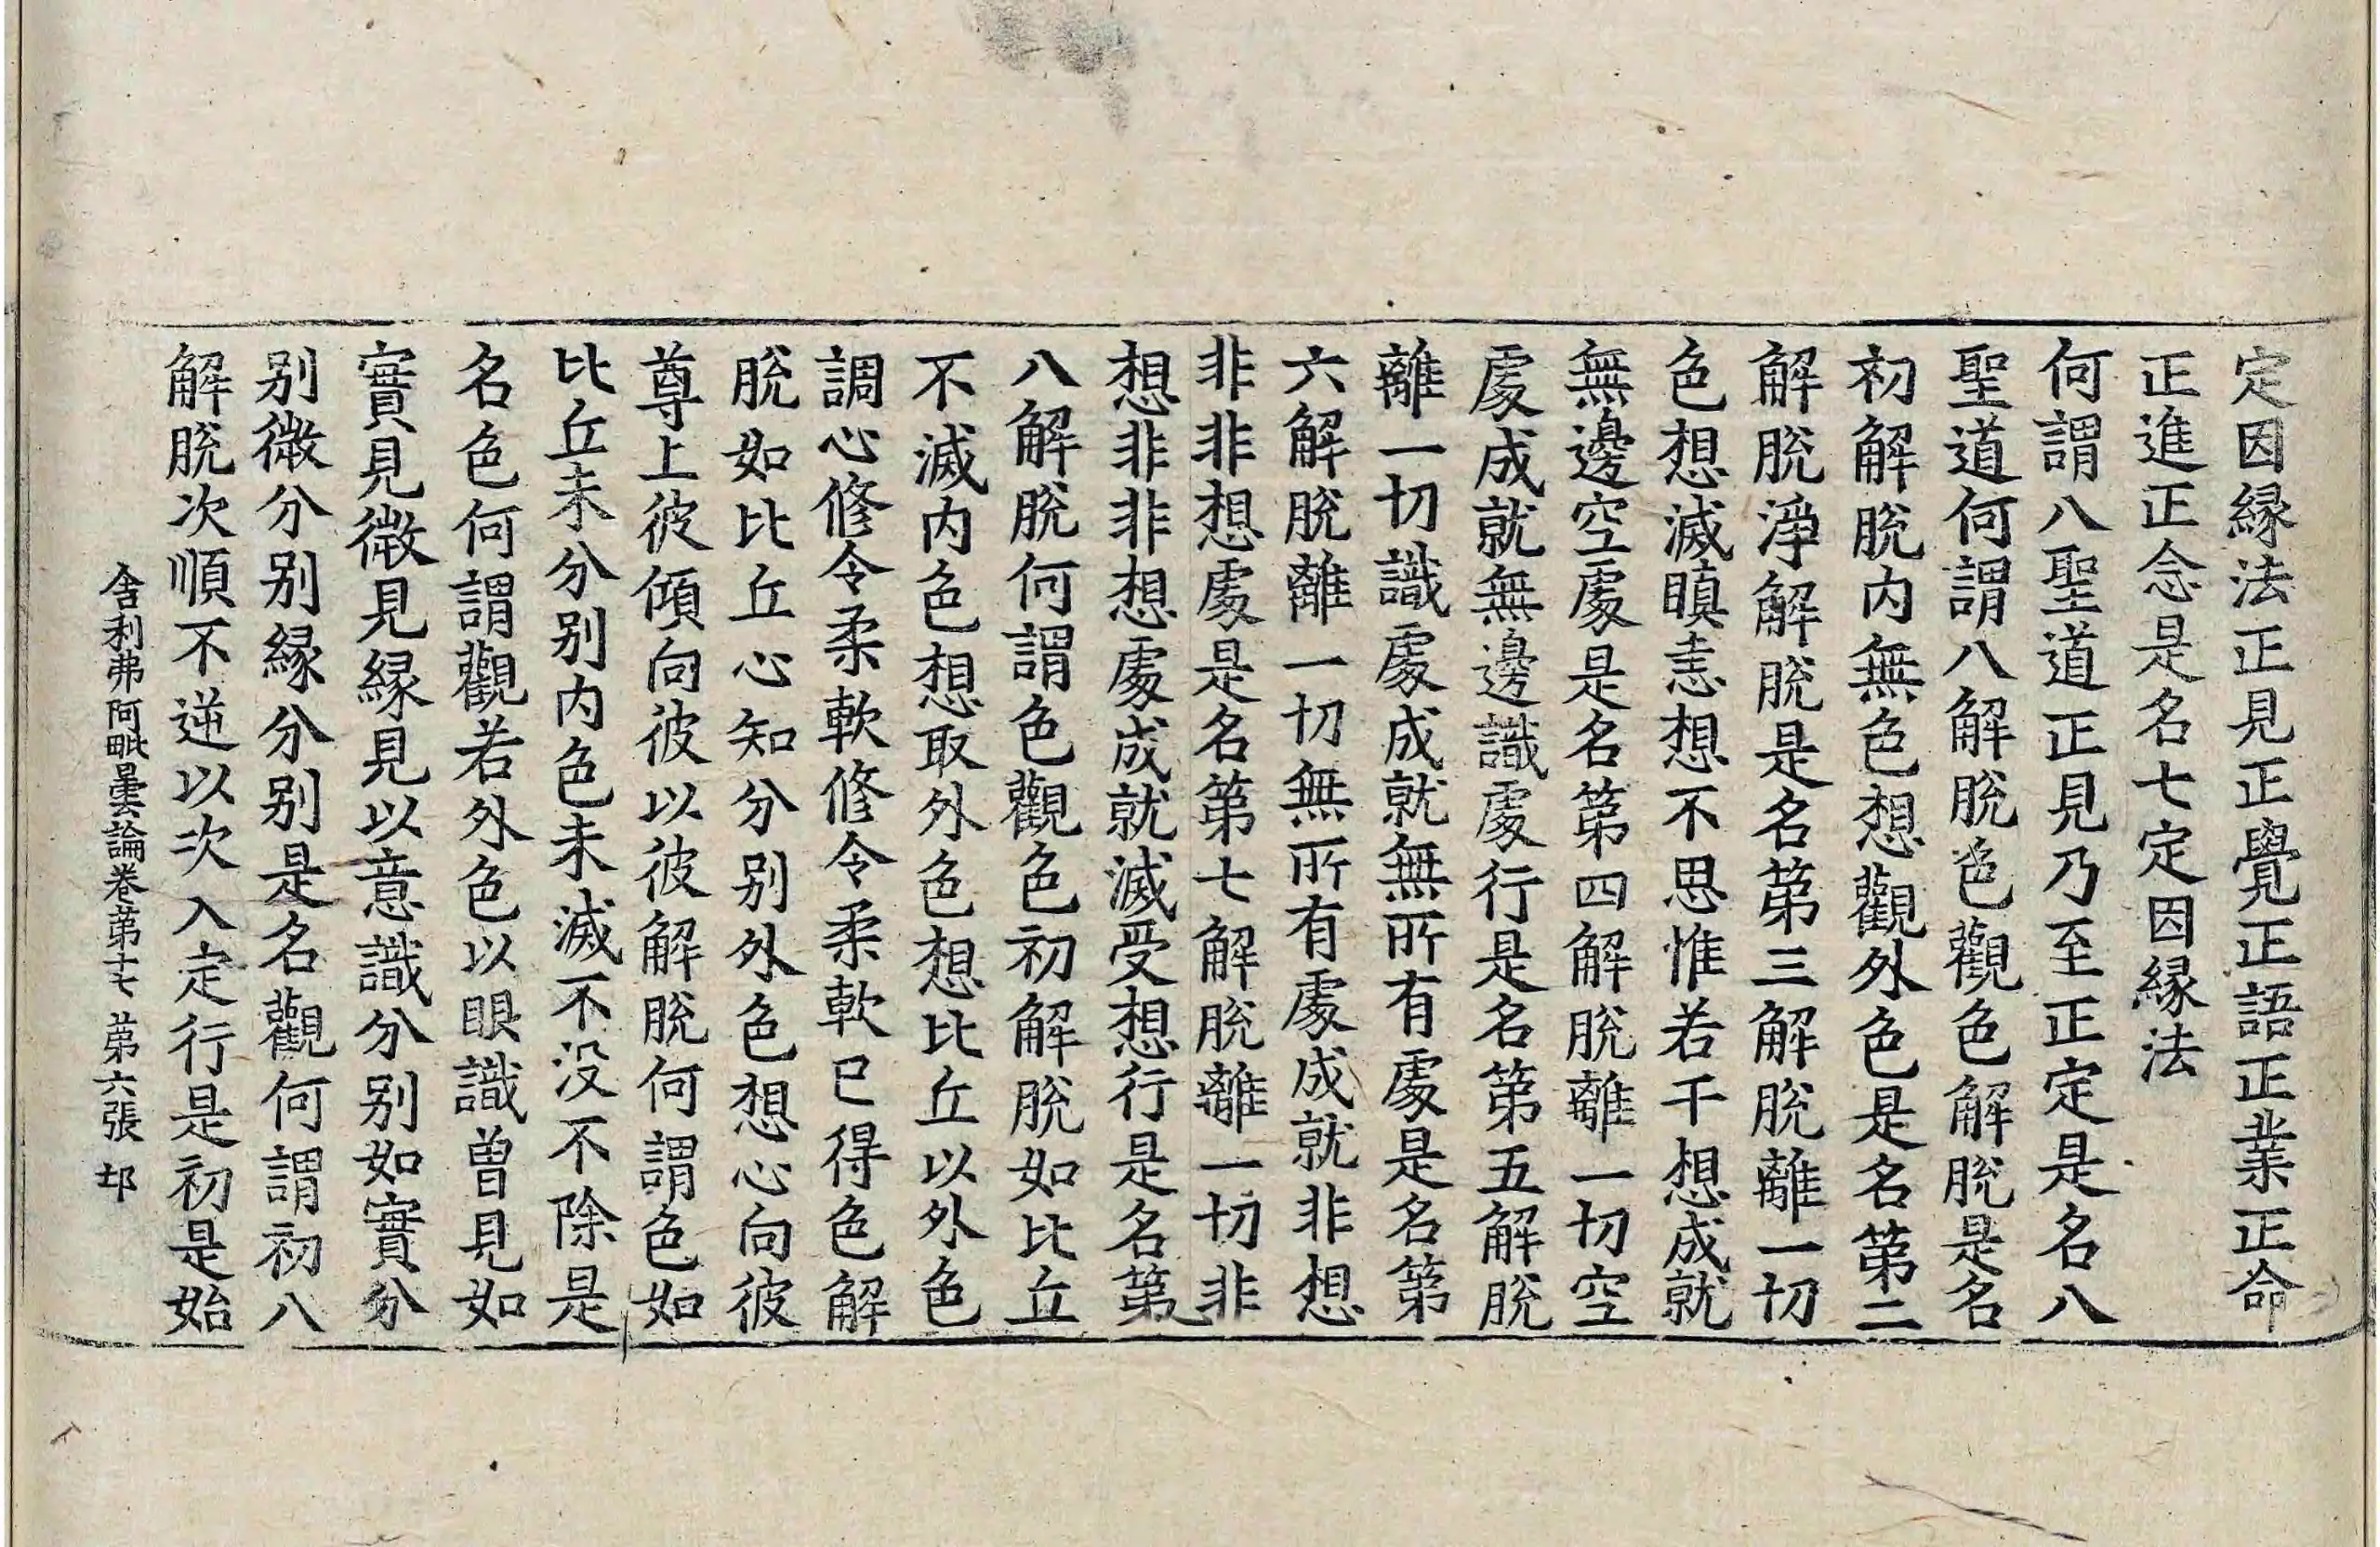 定因縁法正見正覺正語正業正命
正進正念是名七定因縁法
何謂八聖道正見乃至正定是名八
聖道何謂八解脫色觀色解脫是名
初解脫内無色想觀外色是名第二
解脫淨解脫是名第三解脫離一切
色想滅瞋恚想不思惟若干想成就
無邊空處是名第四解脫離一切空
處成就無邊識處行是名第五解脫
離一切識處成就無所有處是名第
六解脫離一切無所有處成就非想
非非想處是名第七解脫離一切非
想非非想處成就滅受想行是名第
八解脫何謂色觀色初解脫如比丘
不滅内色想取外色想比丘以外色
調心修令柔軟修令柔軟已得色解
脫如比丘心知分别外色想心向彼
尊上彼傾向彼以彼解脫何謂色如
比丘未分别内色未滅不没不除是
名色何謂觀若外色以眼識曽見如
實見微見縁見以意識分别如實分
别微分别縁分别是名觀何謂初八
解脫次順不逆以次入定行是初是始
舍利弗阿毗曇論卷第十七 第六張